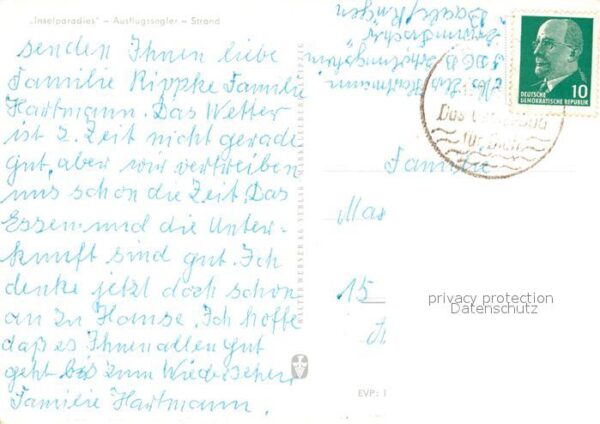 „Inselparadies" – Ausflugssegler – Strand
senden Ihnen liebe
Familie Rippke Familie
Hartmann. Das Wetter
ist z. Zeit nicht gerade
gut, aber wir vertreiben
uns schon die Zeit. Das
Essen und die Unter-
kunft sind gut. Ich
denke jetzt doch schon
an zu Hause. Ich hoffe
daß es Ihnen allen gut
geht bis zum Wiedersehen
Familie Hartmann.
Hartmann
10
DEUTSCHE
DEMOKRATISCHE REPUBLIK
Das
für Dich
Familie
Ma
15
privacy protection
Datenschutz
EVP: